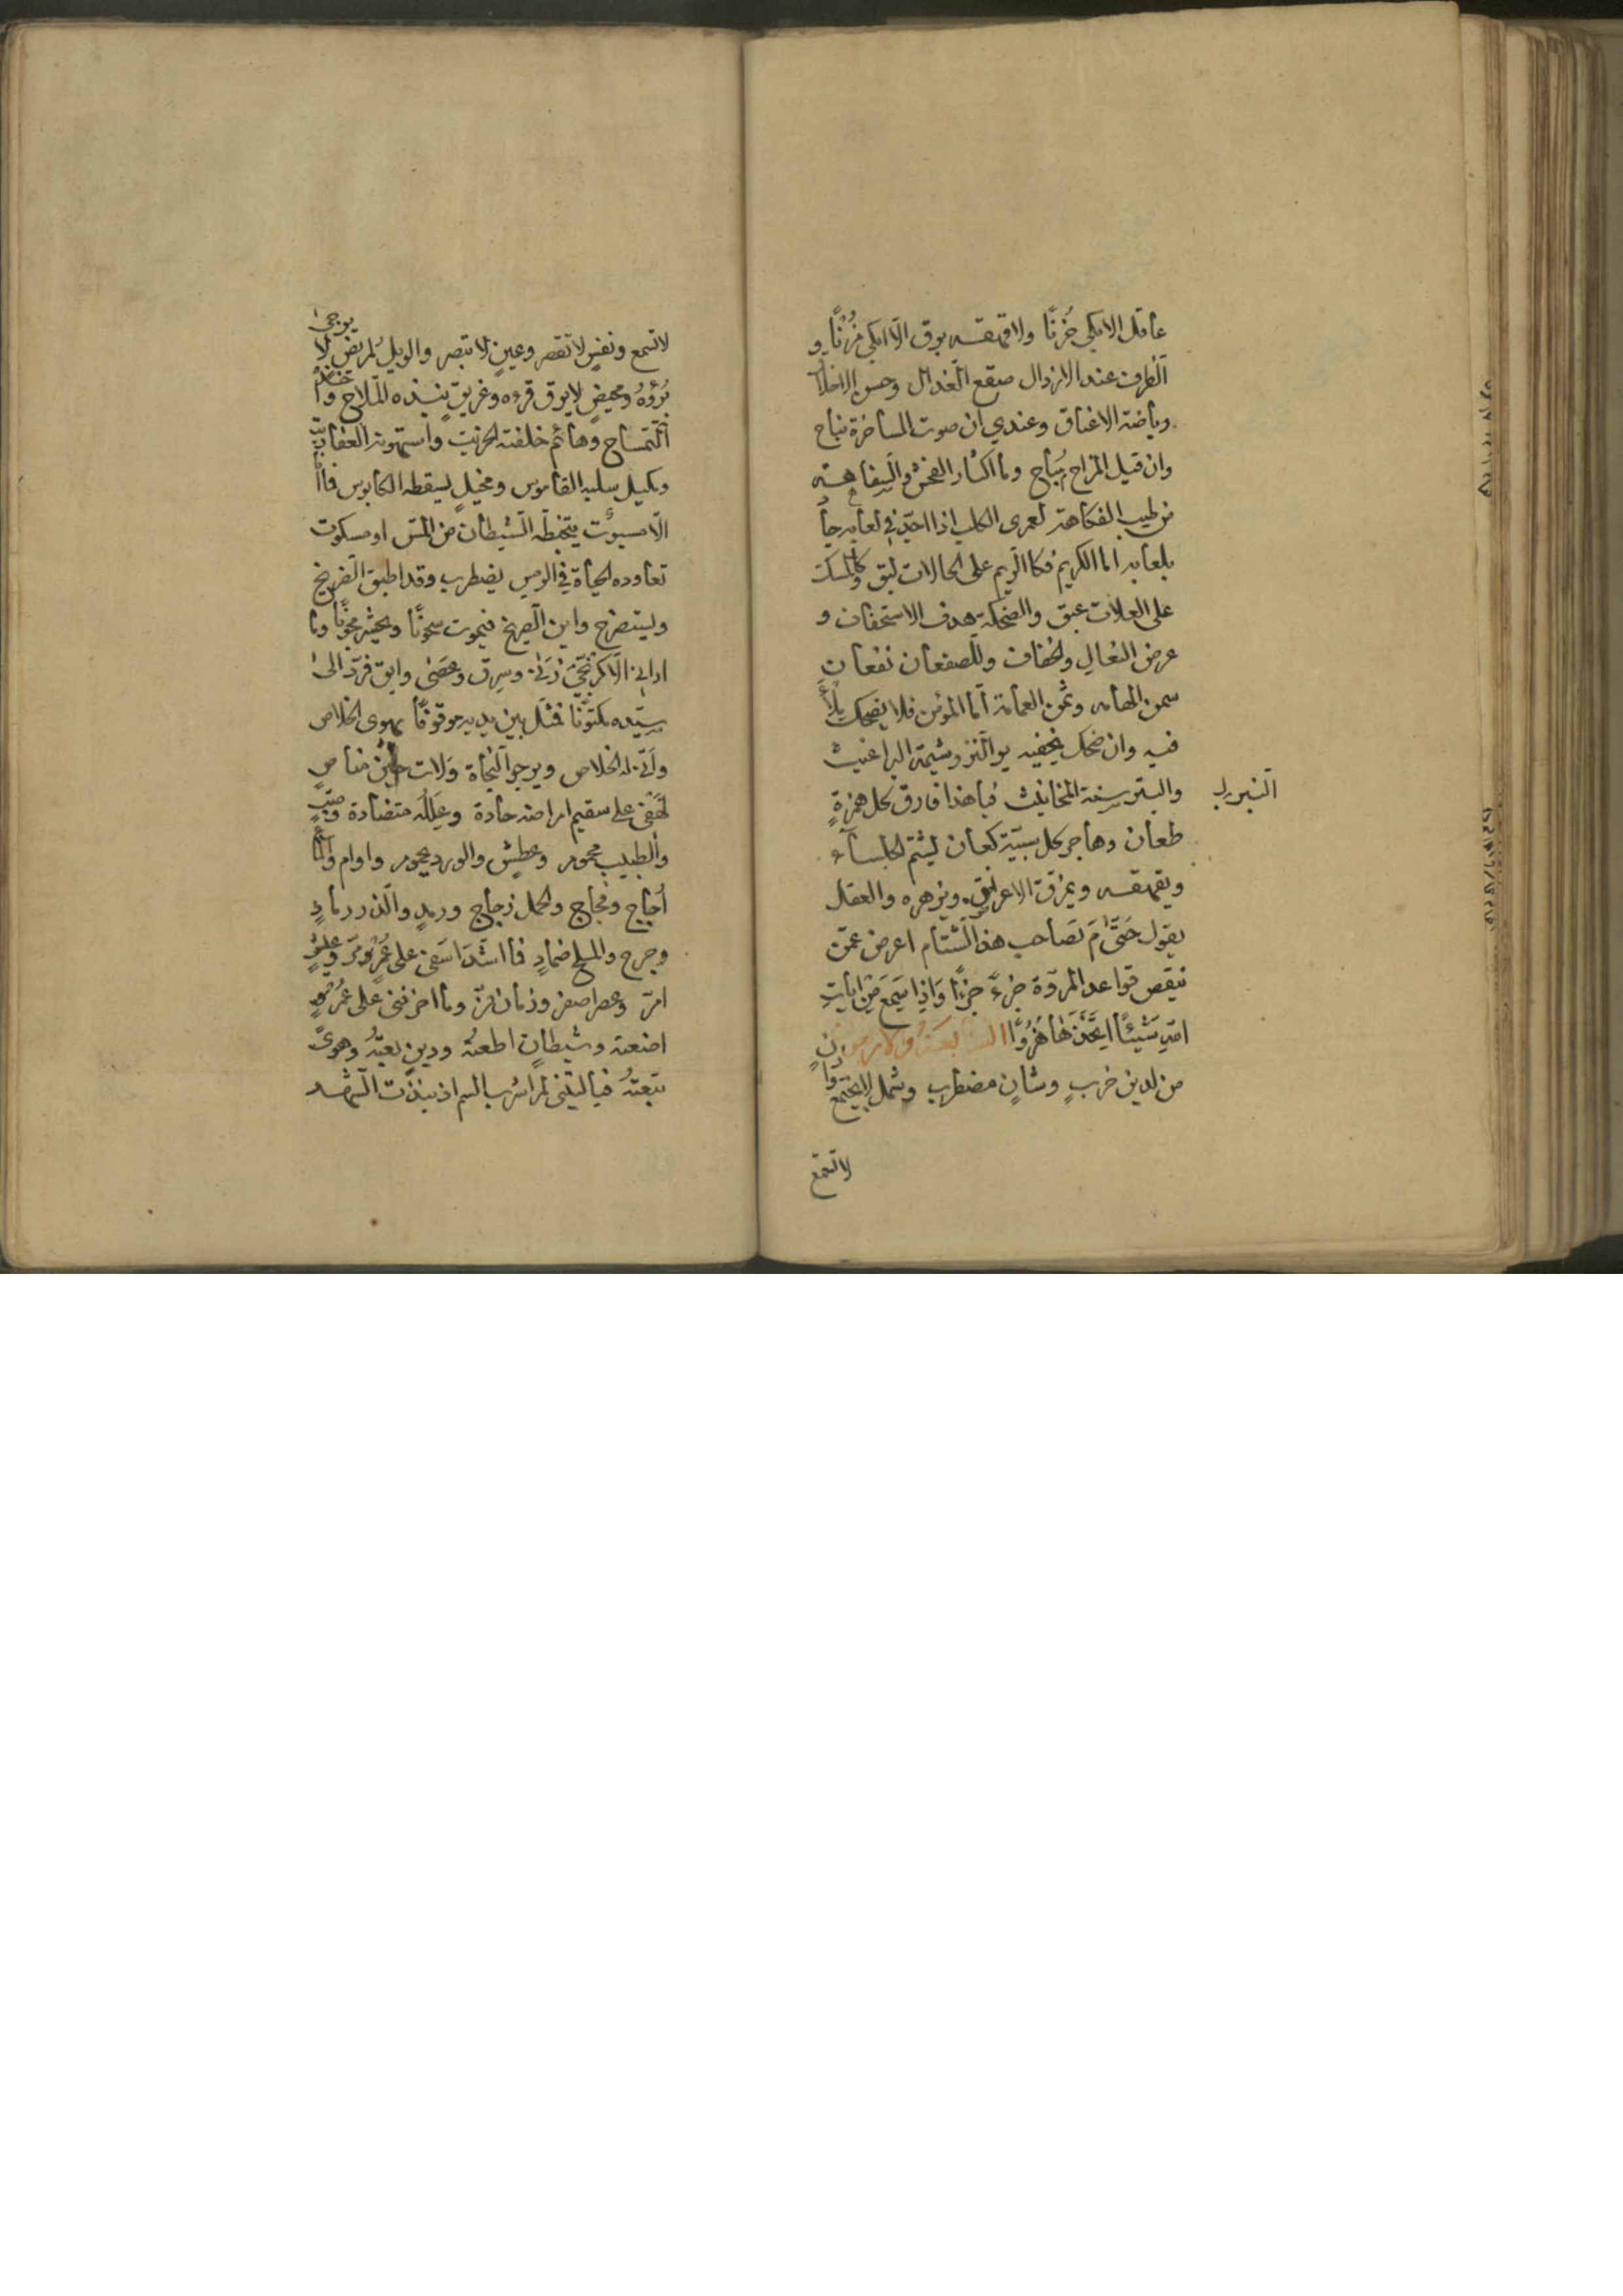 عاقل الا بكى حُزنًا ولا قهقه برق الّا ابكى مُزْنًا و
الظرف عند الارذال صقع القذال وحسن الاخلا
رياضة الاعناق وعندي ان صوت المساخرة نباح
وان قيل المزاح يُباح وما اكثار الفحش والسفاهة
من طيب الفكاهة لعمرى الكلب اذا احتدّ في لعابه جا
بلعابه اما الكريم فكا الريم على الحالات لبق وكالمسك
على العلات عبق والضحكة هدف الاستخفاف و
عرض النعال والخفاف وللصفعان نفعان
سمن الهامه وثمن العمامة امّا المؤمن فلا يضحك بملأ
فيه وان ضحك يخفيه يو النّزو شيمة البراغيث
والنبريب سنة المخانيث فيا هذا فارق كل همزةٍ
النبريب
طعان وهاجر كل سبّيّة كعان يشتم الجلساء
ويقهقه ويمزق الاعراض ويزهزه والعقل
يقول حَتّامَ تصاحب هذا الشّتام اعرض عمّن
ينقص قواعد المروّة جزءً جزءًا وَاِذا سَمِعَ مِنْ ايات
الله شَيْئًا اتَّخَذَهَا هُزُوًا السابعة والاربعون
من لدين خربٍ وشانٍ مضطرب وشمل لايجتمع
لا تسمع
لا تسمع ونفسٍ لا تقصر وعينٍ لا تبصر والويل لمريض لا يرجى
بُرؤُهُ ومحيضٍ لا يرق قرءه وغريق ينبذه الملّاح و
التّمساح وهائم خلفته الخرّيت واستهوته العفاريت
وكليل سلبه القاموس ومخيلٍ يسقطه الكابوس فما
الّا مسبوُت يتخبطه الشيطان من المسّ او مسكوت
تعاوده الحياة في الرمس يضطرب وقد اطبق الضريح
ويستصرخ واين الصريخ فيموت مسجونًا ويحشر مجونًا وما
ارانى الّا كرنجىّ زَنَى وسرق وعصى وابق فرُدّ الى
سيّده مكتوفًا فمثل بين يديه موقوفًا يهوى الخلاص
واَنّى له الخلاص ويرجو النجاة وَلات حين مناصٍ
لَهْفى على سقيم امراضه حادة وعِلَلُه متضادة وصبّ
والطبيب محموم وعطش والورد يحموم واوام والماء
اُجاج وفجاج والحمل زجاج ورمدٍ والذرر رمادٍ
وجرح والملح ضمادٍ فما اشدّ اسفى على عُمُرٍ مرّ وعيشٍ
امرّ وعصر اصفر وزمان فرّ وما احزننى على عمُرٍ
اضعته وشيطانٍ اطعتُه ودينٍ بعتُه وهوىً
تبعتُه فيا ليتنى لم اشرب السم اذ نبذت الشهد